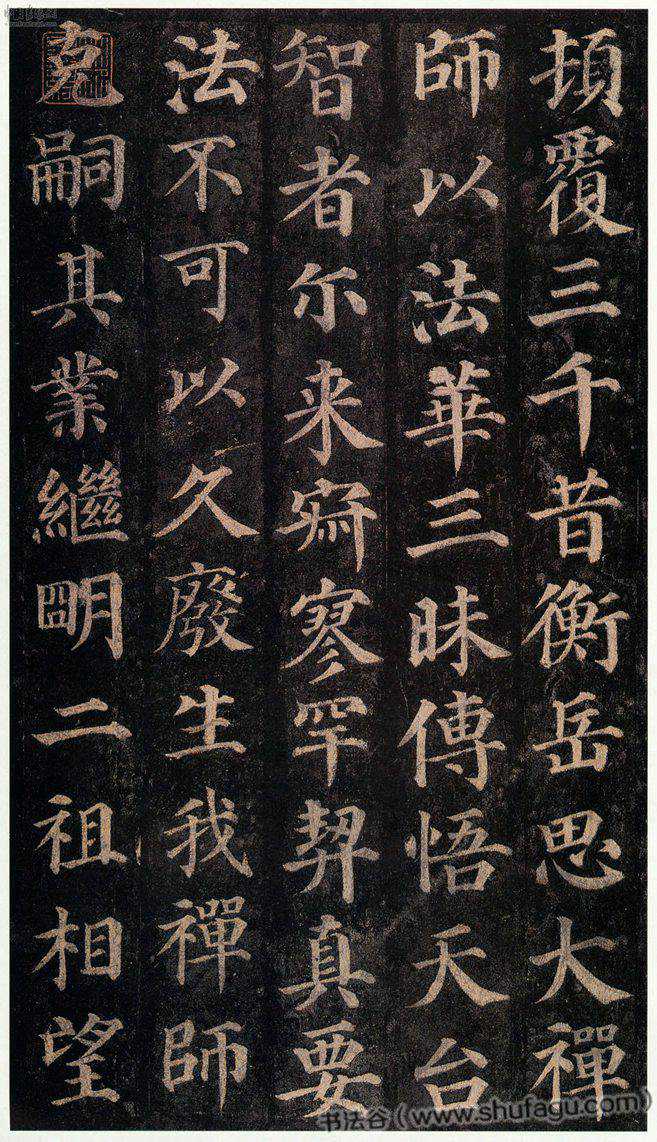 頂覆三千昔衡岳思大禪
師以法華三昧傳悟天台
智者尔来寂寥罕契真要
法不可以久廢生我禪師
克嗣其業繼明二祖相望
书法谷(www.shufagu.com)